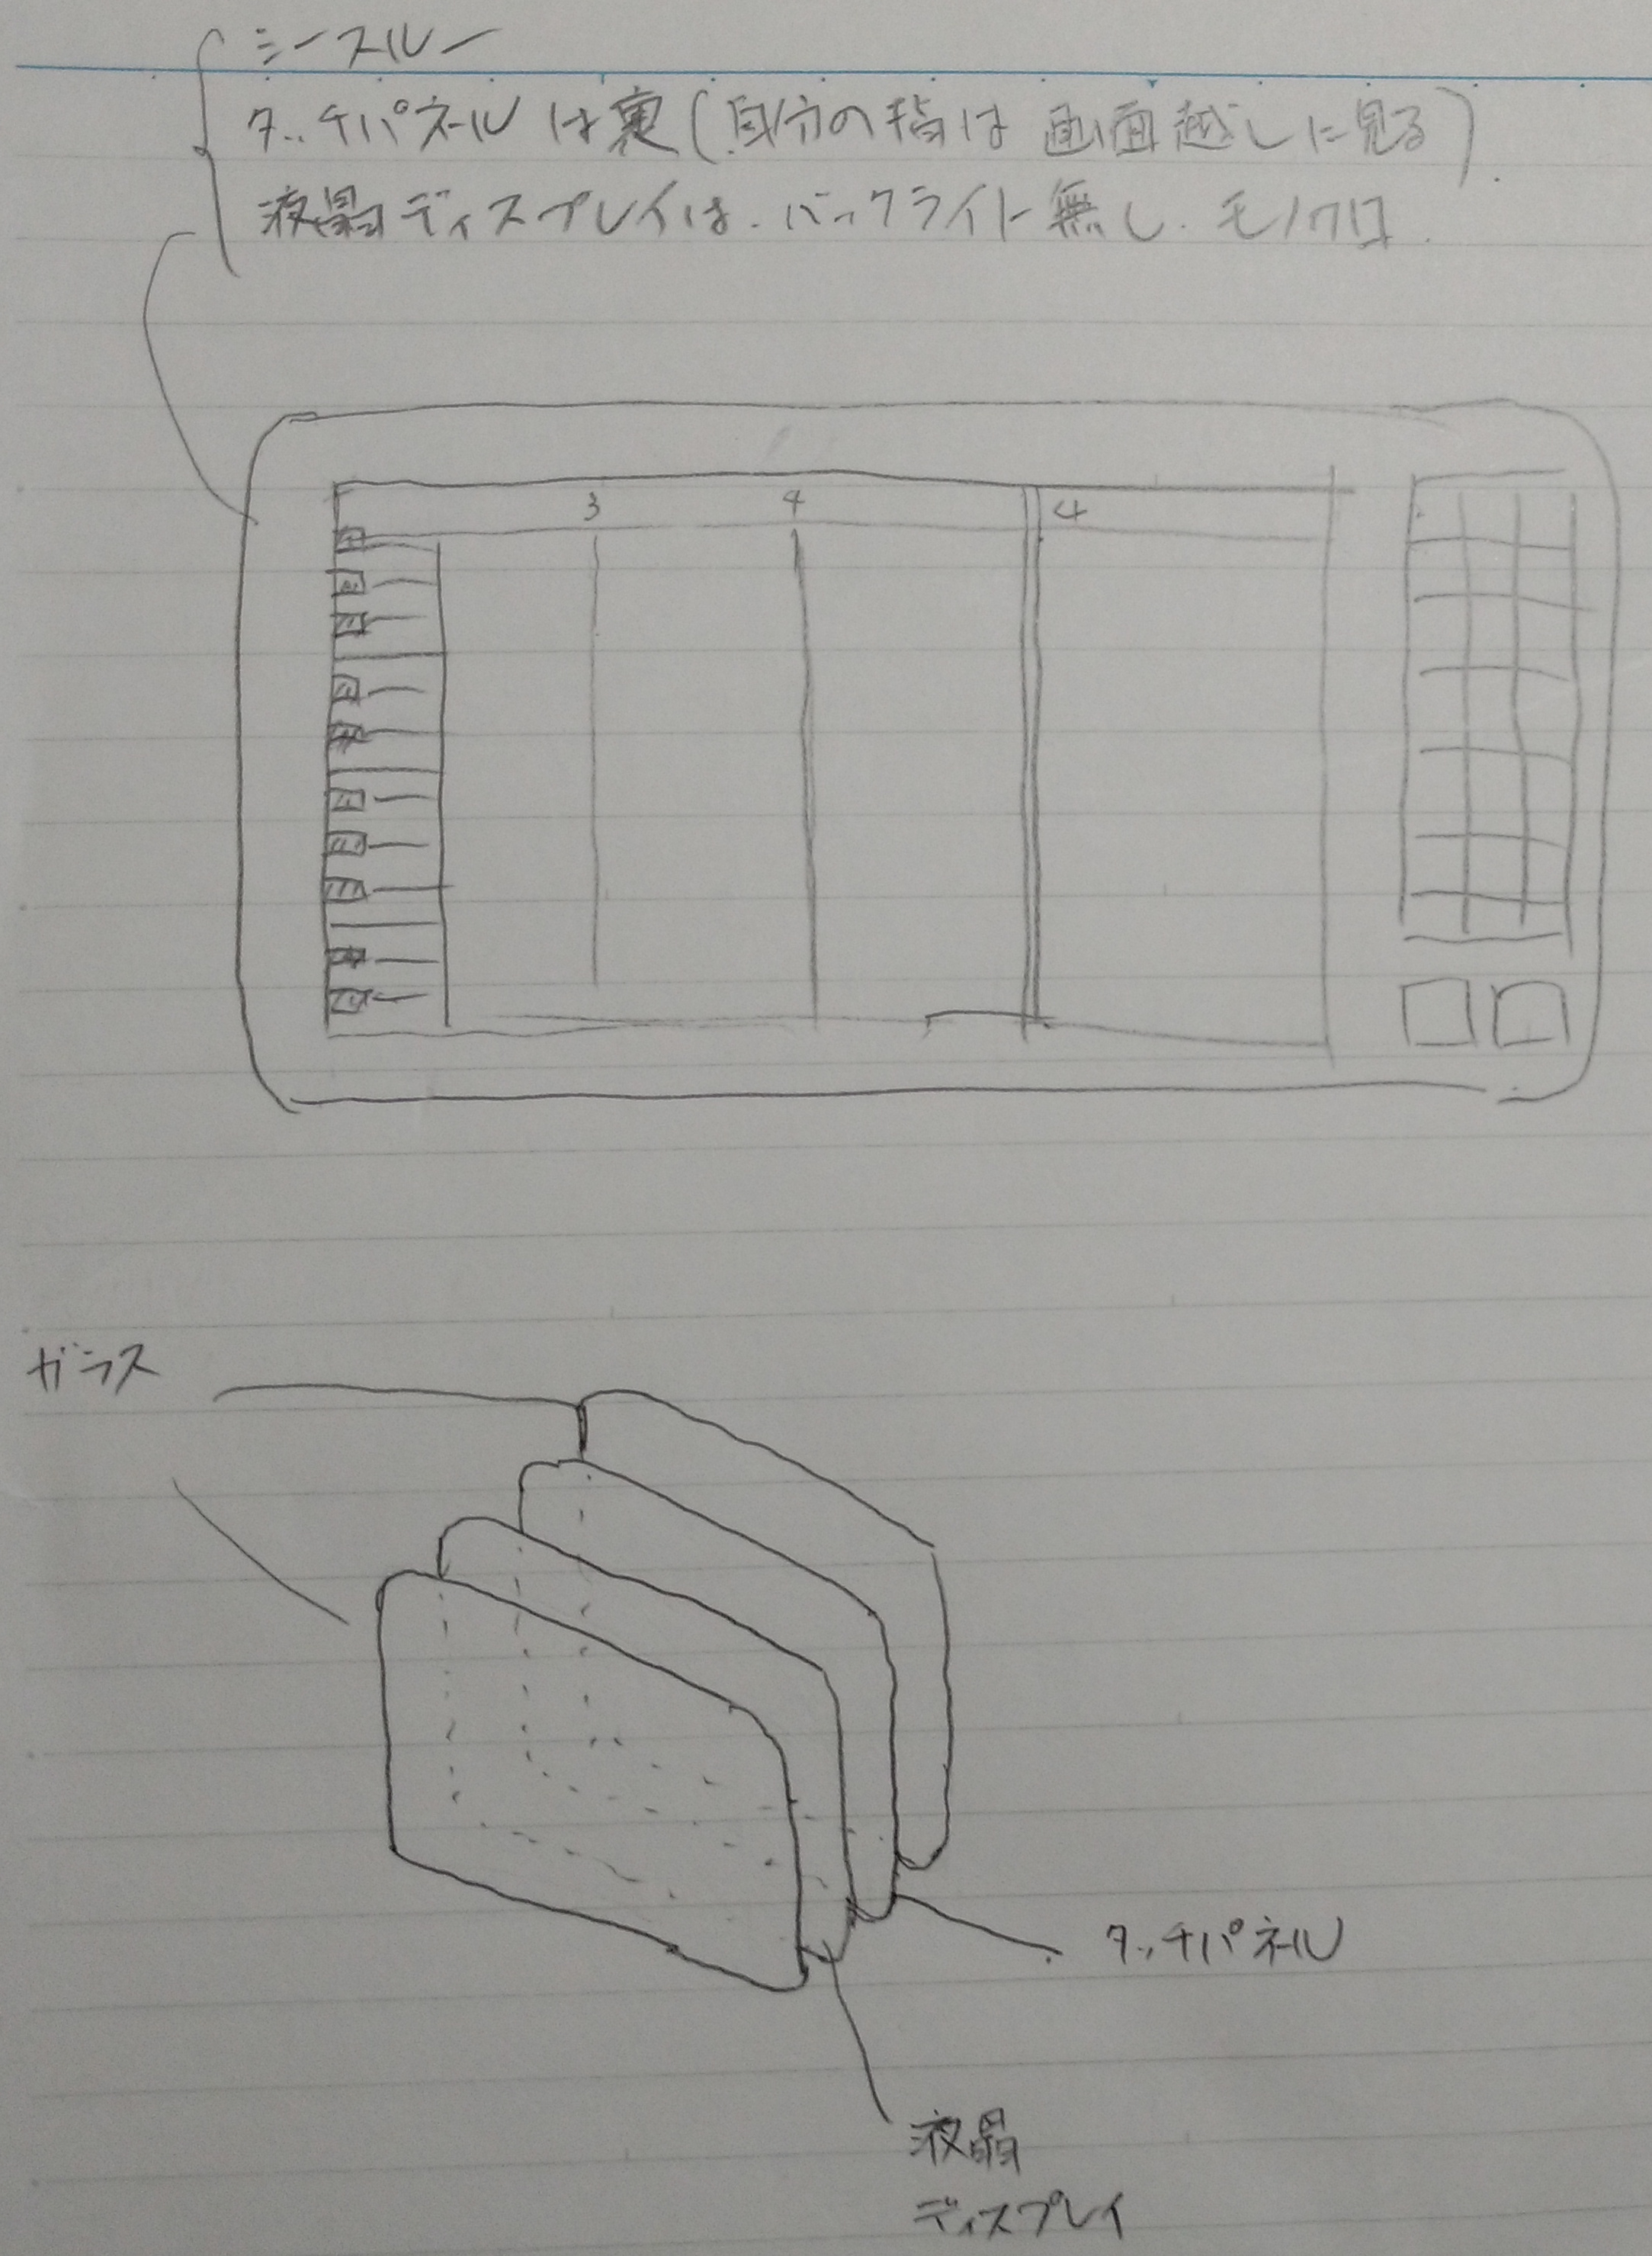 シースルー
タッチパネルは裏(自分の指は画面越しに見る)
液晶ディスプレイは、バックライト無し、モノクロ
3 4 4
ガラス
タッチパネル
液晶
ディスプレイ